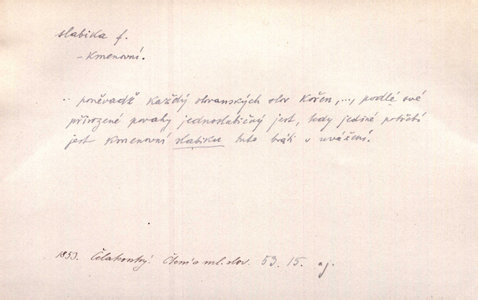 slabika f.
- kmenovní.
.. poněvadž každý slovanských slov kořen, ..., podlé své
přirozené povahy jednoslabičný jest, tedy jediné potřebí
jest kmenovní slabiku tuto bráti v uvážení.
1853. Čelakovský. Čtení o ml. slov. 53. 15. aj.